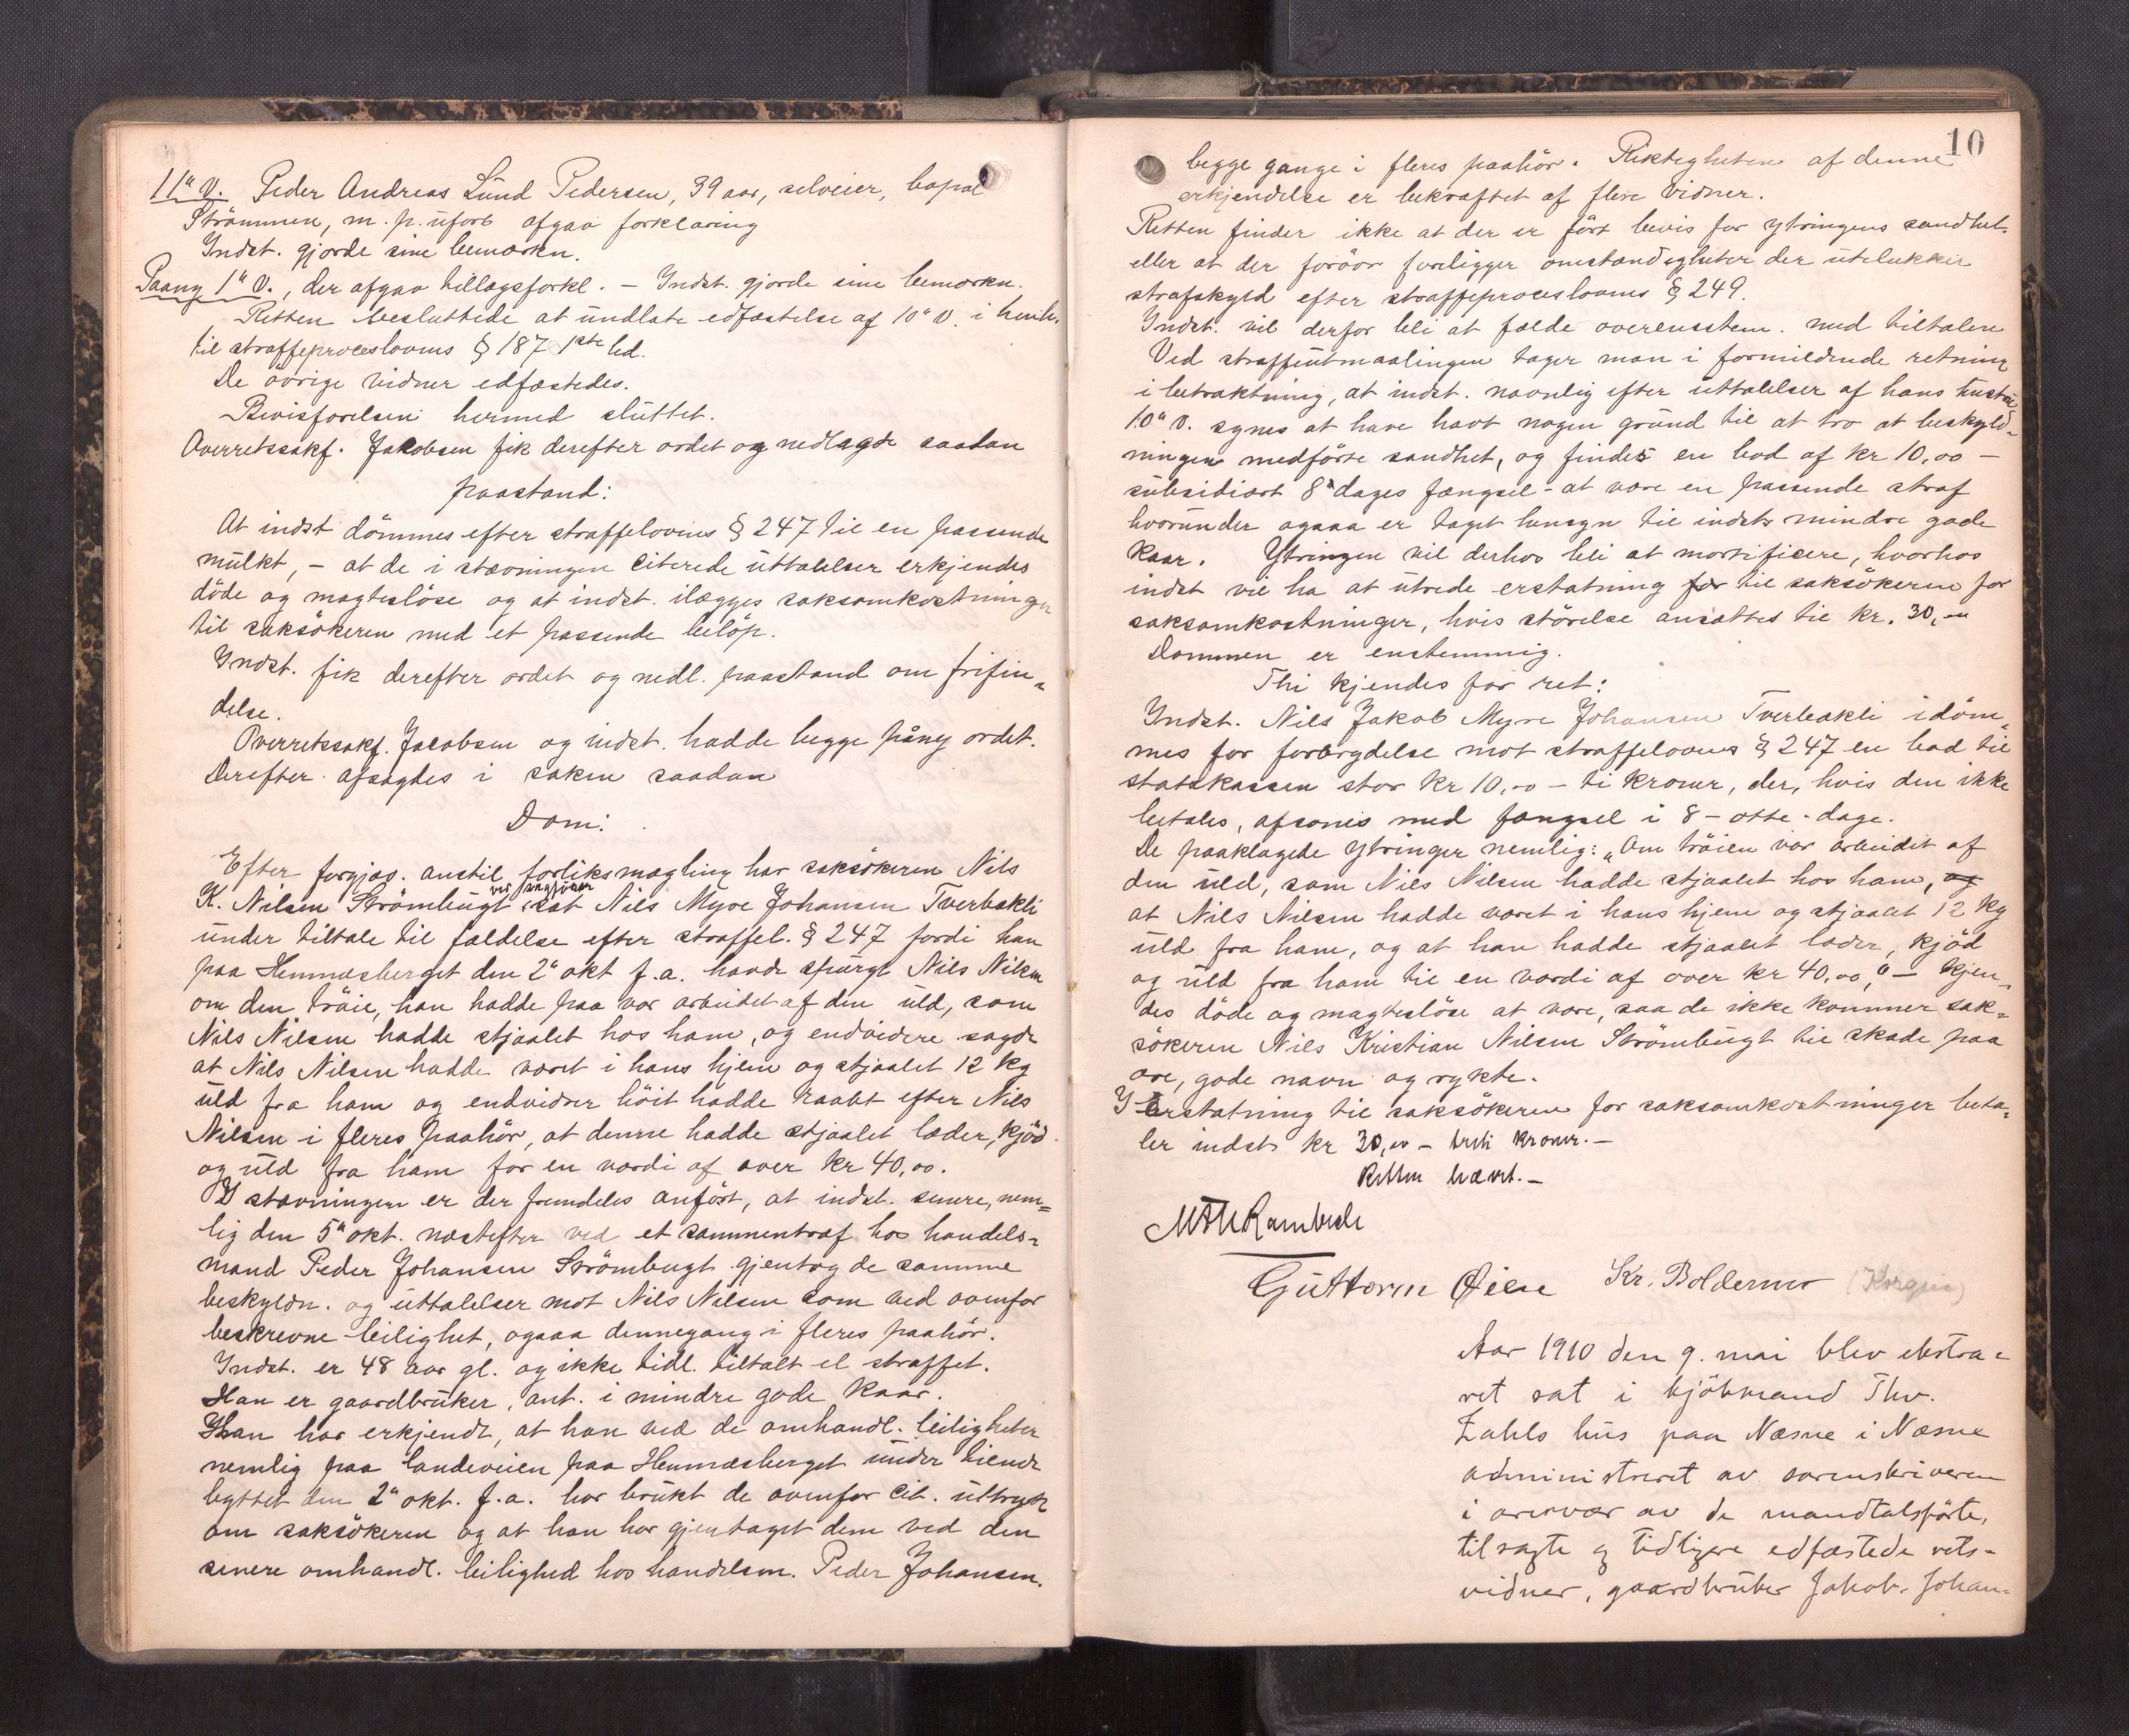 11" V. Peder Andreas Lund Pedersen, 39 aar, selveier, bopæl
Strömmen, m. p. uforb afgav forklaring
Indst. gjorde sine bemærkn.
Paany 1" V., der afgav tillægsforkl. – Indst. gjorde sine bemærkn.
Retten besluttede at undlate edfæstelse af 10" V. i henh.
til straffeproceslovens § 187 1ste led.
De övrige vidner edfæstedes.
Bevisförelsen hermed sluttet.
Overretssakf. Jakobsen fik derefter ordet og nedlagde saadan
paastand:
At indst dömmes efter straffelovens § 247 til en passende
mulkt, – at de i stævningen citerede uttalelser erkjendes
döde og magteslöse og at indst. ilægges saksomkostninger
til saksökeren med et passende belöp.
Indst. fik derefter ordet og nedl. paastand om frifin-
delse.
Overretssakf. Jacobsen og indst. hadde begge påny ordet.
Derefter afsagdes i saken saadan
Dom:
Efter forgjæv. anstil. forliksmægling har saksökeren Nils
K. Nilsen Strömbugt sat Nils Myre Johansen Tverbakli
under tiltale til fældelse efter straffel. § 247 fordi han
paa Hemnæsberget den 2" okt f.a. havde spurgt Nils Nilsen
om den tröie, han hadde paa var arbeidet af den uld, som
Nils Nilsen hadde stjaalet hos ham, og endvidere sagde
at Nils Nilsen hadde været i hans hjem og stjaalet 12 kg
uld fra ham og endvidrer höit hadde raabt efter Nils
Nilsen i fleres paahör, at denne hadde stjaalet læder, kjöd
og uld fra ham for en værdi af over kr 40,00.
I stævningen er der fremdeles anfört, at indst. senere, nem=
lig den 5" okt. næstefter ved et sammentræf hos handels=
mand Peder Johansen Strömbugt gjentog de samme
beskyldn. og uttalelser mot Nils Nilsen som ved ovenfor
beskrevne leilighet, ogsaa dennegang i fleres paahör.
Indst. er 48 aar gl. og ikke tidl. tiltalt el straffet.
Han er gaardbruker, ant. i mindre gode kaar.
Han har erkjendt, at han ved de omhandl. leiligheter
nemlig paa landeveien paa Hemnæsberget under tiende
byttet den 2" okt. f.a. har brukt de ovenfor cit. uttryk
om saksökeren og at han har gjentaget dem ved den
senere omhandl. leilighed hos handelsm. Peder Johansen.
10
begge gange i fleres paahör. Riktigheten af denne
erkjendelse er bekræftet af flere vidner.
Retten finder ikke at der er fört bevis for ytringens sandhet.
eller at der forövr foreligger omstændigheter der utelukker
strafskyld efter straffeproceslovens § 249.
Indst. vil derfor bli at fælde overensstem. med tiltalen
Ved straffeutmaalingen tager man i formildende retning
i betraktning, at indst. navnlig efter uttalelser af hans hustru
10" V. synes at have havt nogen grund til at tro at beskyld-
ningen medförte sandhet, og findes en bod af kr 10,00 –
subsidiært 8 dages fængsel – at være en passende straf
hvorunder ogsaa er taget hensyn til indsts mindre gode
kaar. Ytringen vil derhos bli at mortificere, hvorhos
indst vil ha at utrede erstatning for til saksökeren for
saksomkostninger, hvis störelse ansættes til kr. 30,00
Dommen er enstemmig.
Thi kjendes for ret:
Indst. Nils Jakob Myre Johansen Tverbakli idöm-
mes for forbrydelse mot straffelovens § 247 en bod til
statskassen stor kr 10,00 – ti kroner, der, hvis den ikke
betales, afsones med fængsel i 8 – otte – dage.
De paaklagede ytringer nemlig: „Om tröien var arbeidet af
den uld, som Nils Nilsen hadde stjaalet hos ham, og
at Nils Nilsen hadde været i hans hjem og stjaalet 12 kg
uld fra ham, og at han hadde stjaalet læder, kjöd
og uld fra ham til en værdi af over kr 40,00," – kjen-
des döde og magteslöse at være, saa de ikke kommer sak=
sökeren Nils Kristian Nilsen Strömbugt til skade paa
ære, gode navn og rykte.
I erstatning til saksökeren for saksomkostninger beta=
ler indst kr 30,00 – treti kroner. –
Retten hævet. –
Rambech
Guttorm Öien Kr. Boldermo (Korgen)
Aar 1910 den 9. mai blev ekstra=
ret sat i kjöbmand Thv.
Zahls hus paa Næsne i Næsne
administreret av sorenskriveren
i overvær av de mandtalsförte,
tilsagte og tidligere edfæstede rets=
vidner, gaardbruker Jakob Johan=